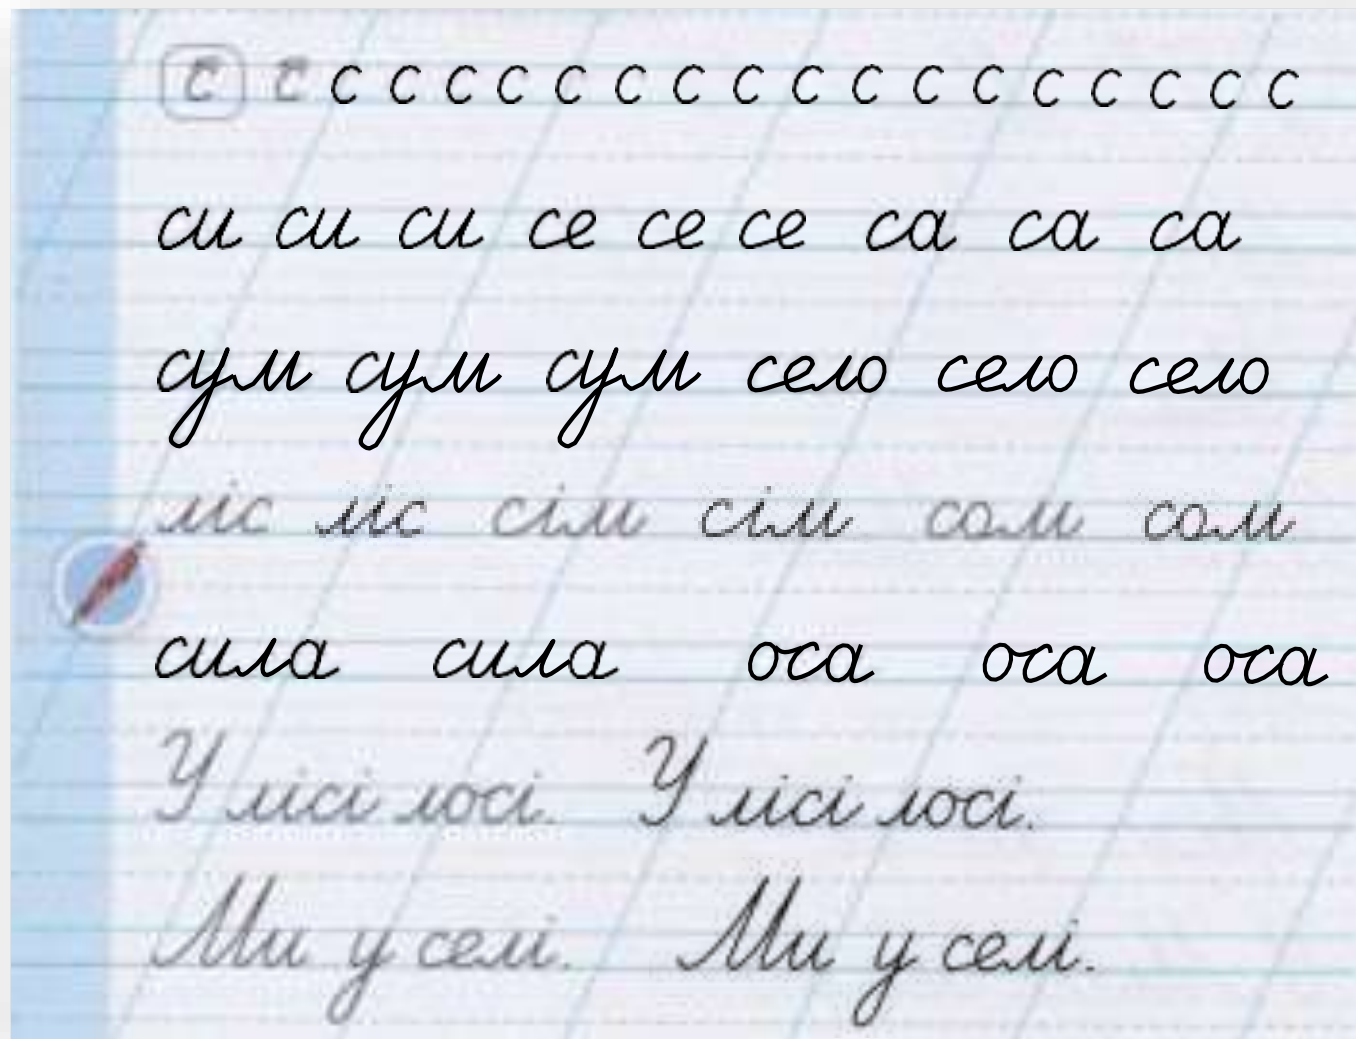 с с с с с с с с с с с с с с с с с с с
си си си се се се са са са
сум сум сум село село село
ліс ліс сім сім сом сом
сила сила оса оса оса
У лісі лосі. У лісі лосі.
Ми у селі. Ми у селі.